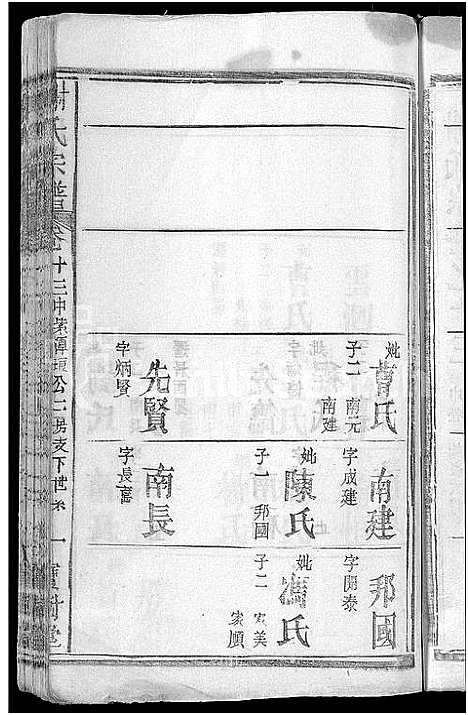 謝氏宗譜
卷十三
公二房支下世系
一
寶樹堂
妣曹氏
子二
南元
南建
先賢
字炳賢
南建
字成建
妣陳氏
子一
邦國
南長
字長富
邦國
字開泰
妣馮氏
子二
家美
家順